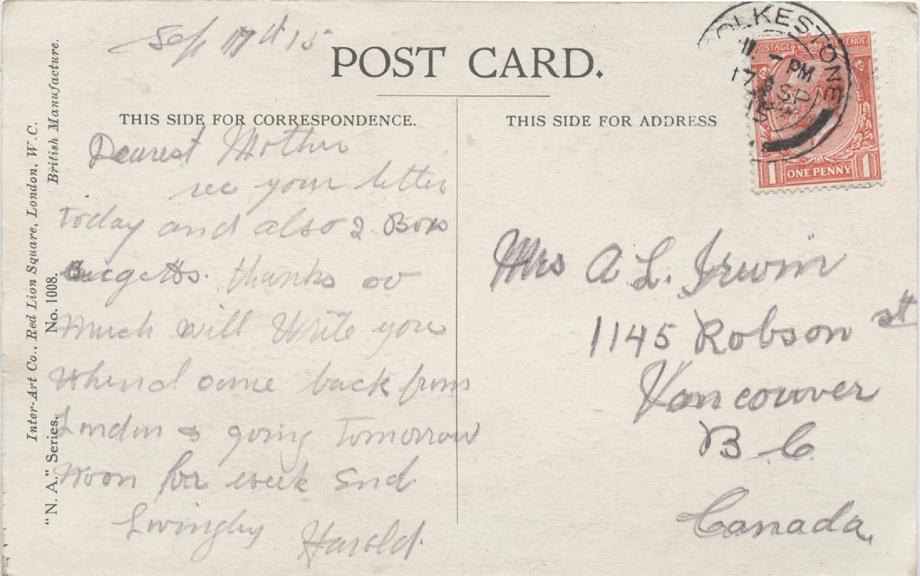 Sep 17th 15
POST CARD.
THIS SIDE FOR CORRESPONDENCE.
THIS SIDE FOR ADDRESS
Inter-Art Co., Red Lion Square, London, W.C.
British Manufacture.
"N. A." Series.
No. 1008.
FOLKESTONE
PM
17 SP
15
POSTAGE
ONE PENNY
1
1
Dearest Mother
rec your letter
today and also 2 Box
thanks
much will Write you
When come back from
London going tomorrow
noon for week End
Lovingly
Harold.
Mrs A L. Irwin
1145 Robson st
Vancouver
B C
Canada,